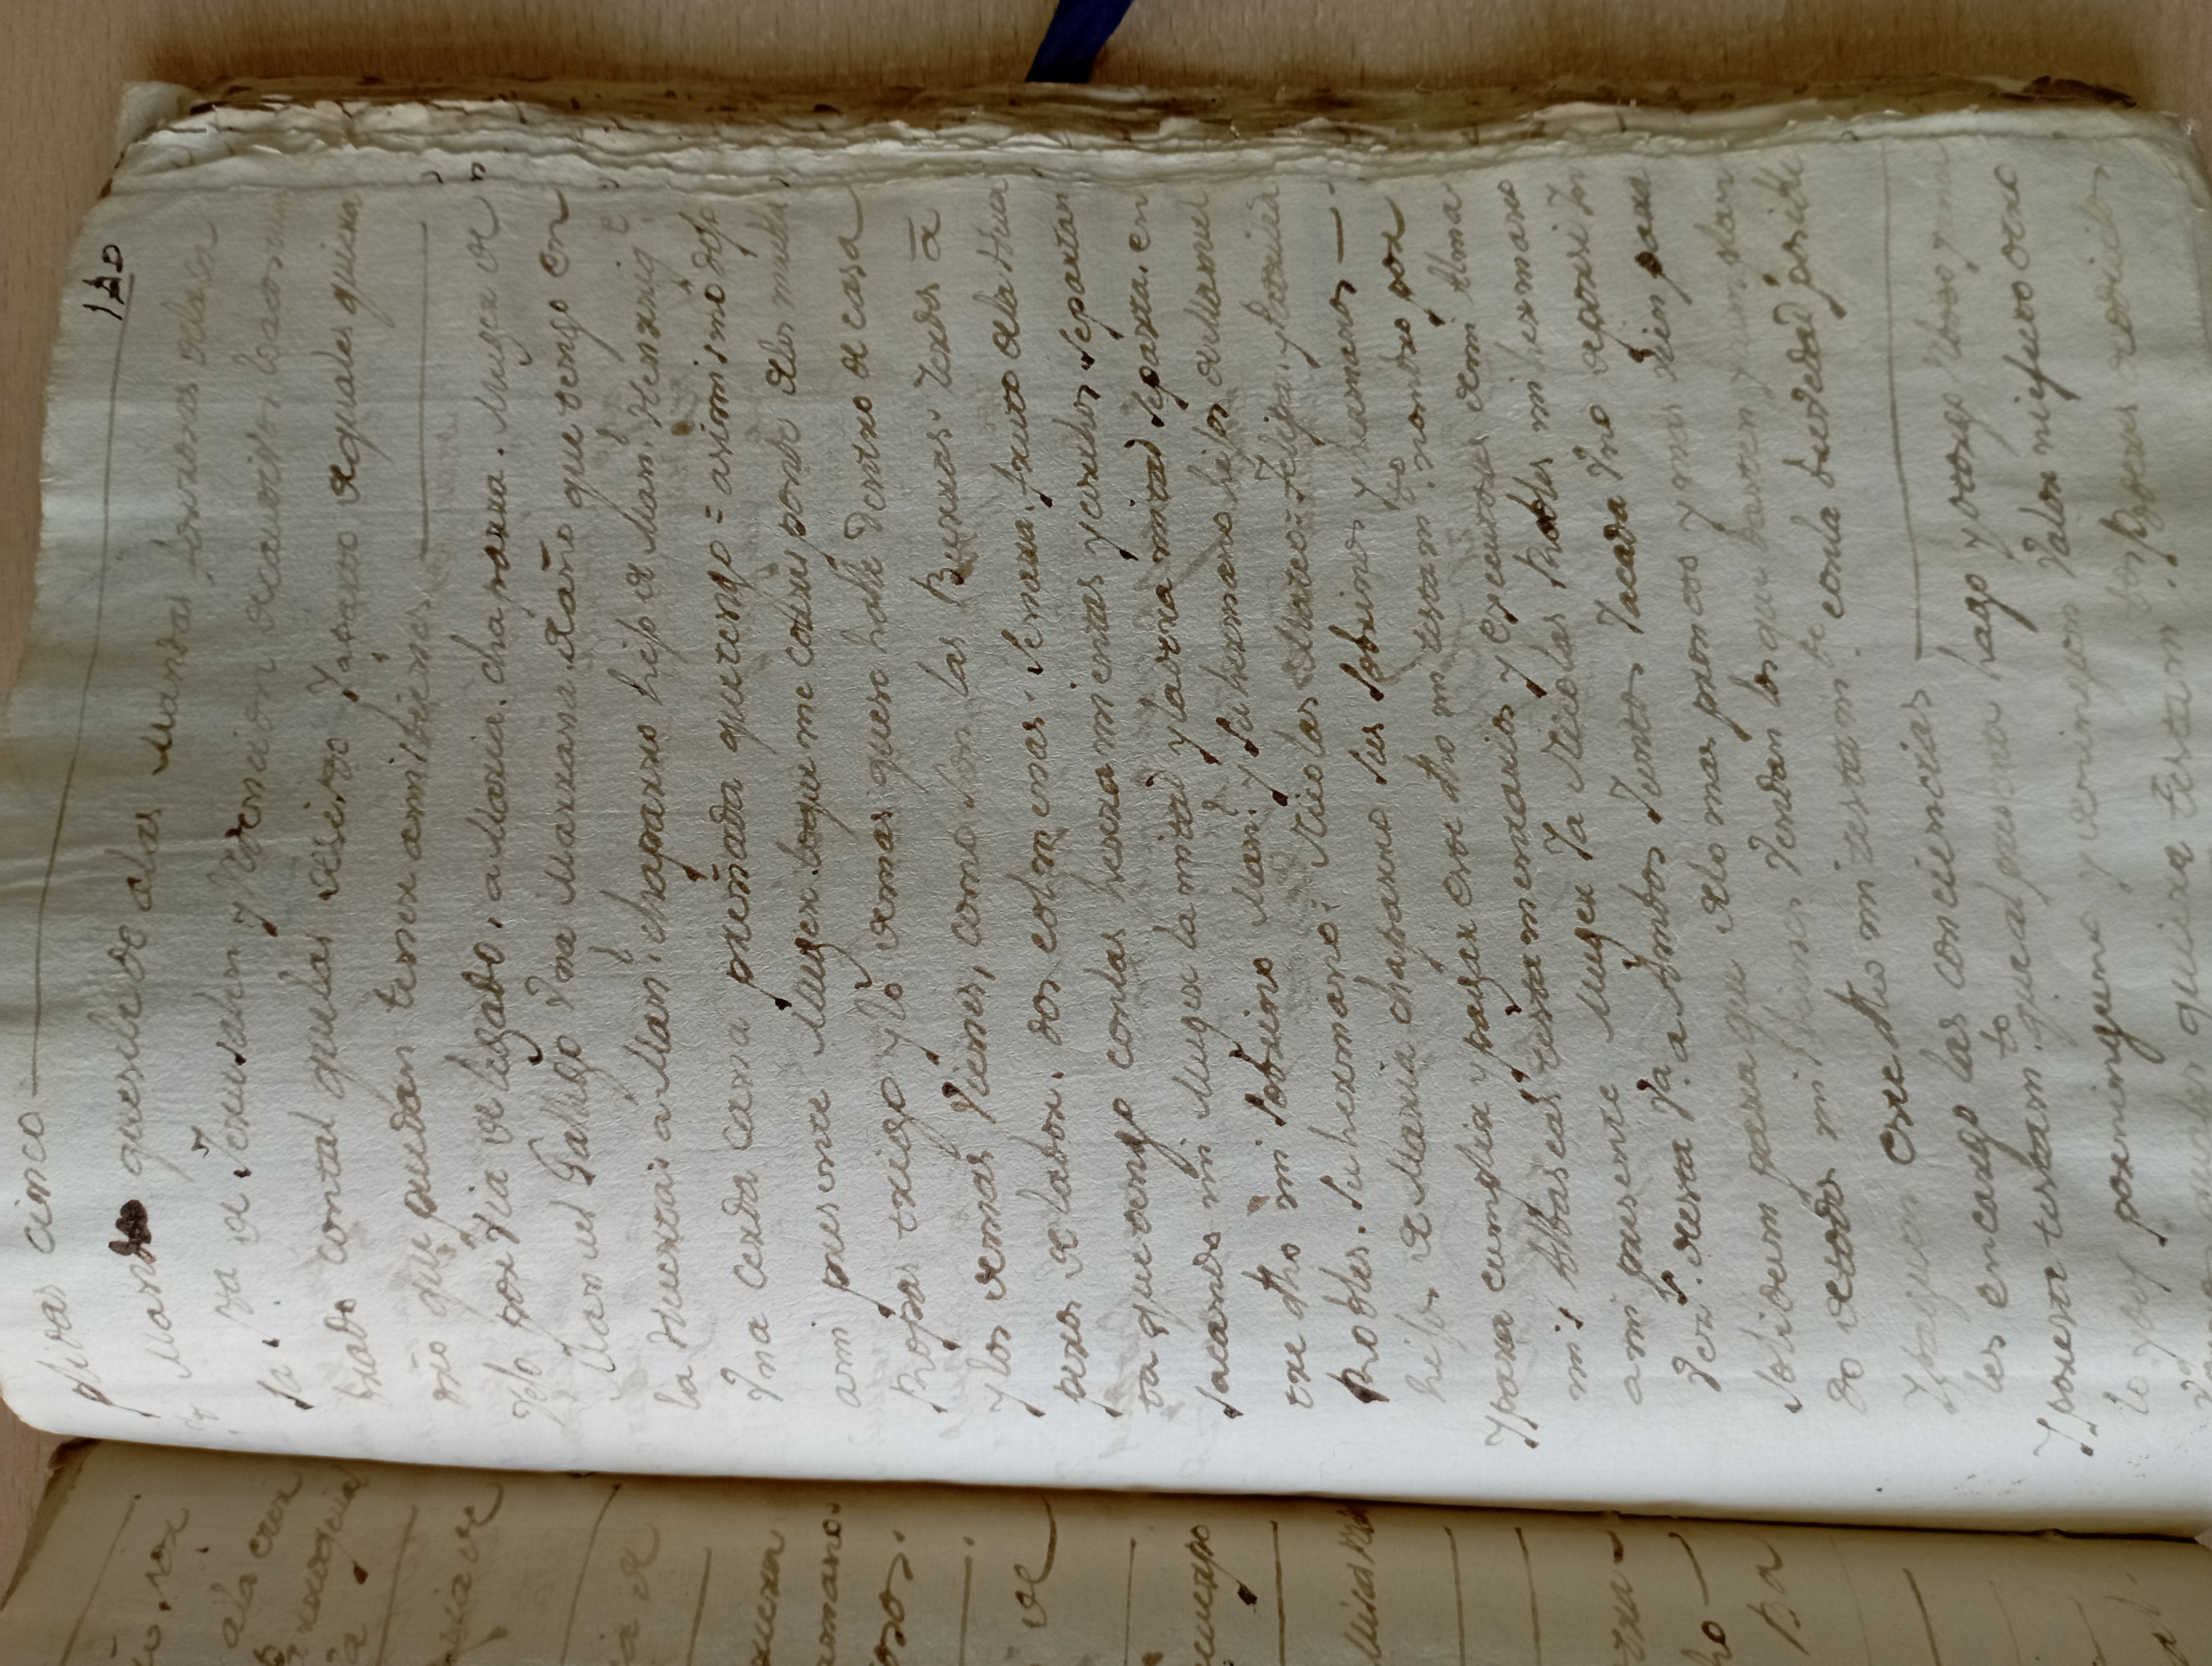 plidas cinco
120
Mando quesele de alas Mandas forzosas dela ca
sa sta de Jerusalen y Redencion decautivos loacostum
brado contal quelas desisto Yaparto dequales quiera
dro que puedan tener amis vienes
Dejo por Via de legado. a Maria. chaparra. Muger de
Manuel Gallego Vna Marrana deaño que tengo en
la Huerta: a Manl. chaparro hijo de Manl. Henrriqe.
Vna Cerda Cana preñada quetengo = asimismo dejo
ami presente Muger loque me corresponde delos muebles
Ropas trigo y lo demas quese halle Dentro de casa
y los demas Vienes, como son las Burras. Cerdos a
peros de labor. dos colmenas. Senara. fruto dela Huer
ta que tengo conlas herramientas y corchos. separtan
sacando mi Muger la mitad y laotra mitad separta. en
tre dho mi sobrino Manl. y suhermano hijos deManuel
Robles. suhermano: Nicolas Mateo: Felipa. y Patricia
hijos de Maria chaparro sus sobrinos y hermanos
Ypara cumplir y pagar este dho mi testamto. nombro por
mis Albaseas testamentarios y executores demi Alma
ami presente Muger Ya Nicolas Robles mi hermano
Vezs. desta Va. a Ambos Juntos Yacada Vno deporsi In
solidum para que delo mas proncto y mas vien para
do detodos mis vienes Vendan los que basten y cumplan
Ypaguen este dho mi testamto. conla brevedad posible
les encargo las conciencias
Yporeste testamto. queal presente hago y otorgo Reboco y anu
lo y doy porninguno y deningun Valor niefecto otro
quales quiera testamtos. Poderes codicilos